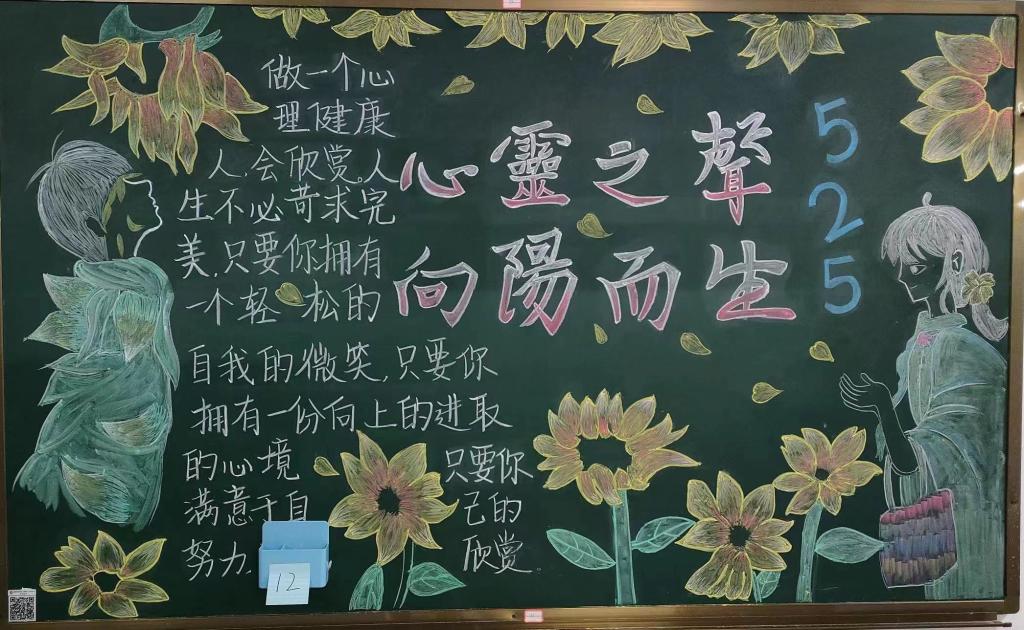 做一个心
理健康
人,会欣赏,人
生不必苛求完
美,只要你拥有
一个轻松的
自我的微笑,只要你
拥有一份向上的进取
的心境 只要你
满意于自 己的
努力. 欣赏。
心靈之聲
向陽而生
525
12